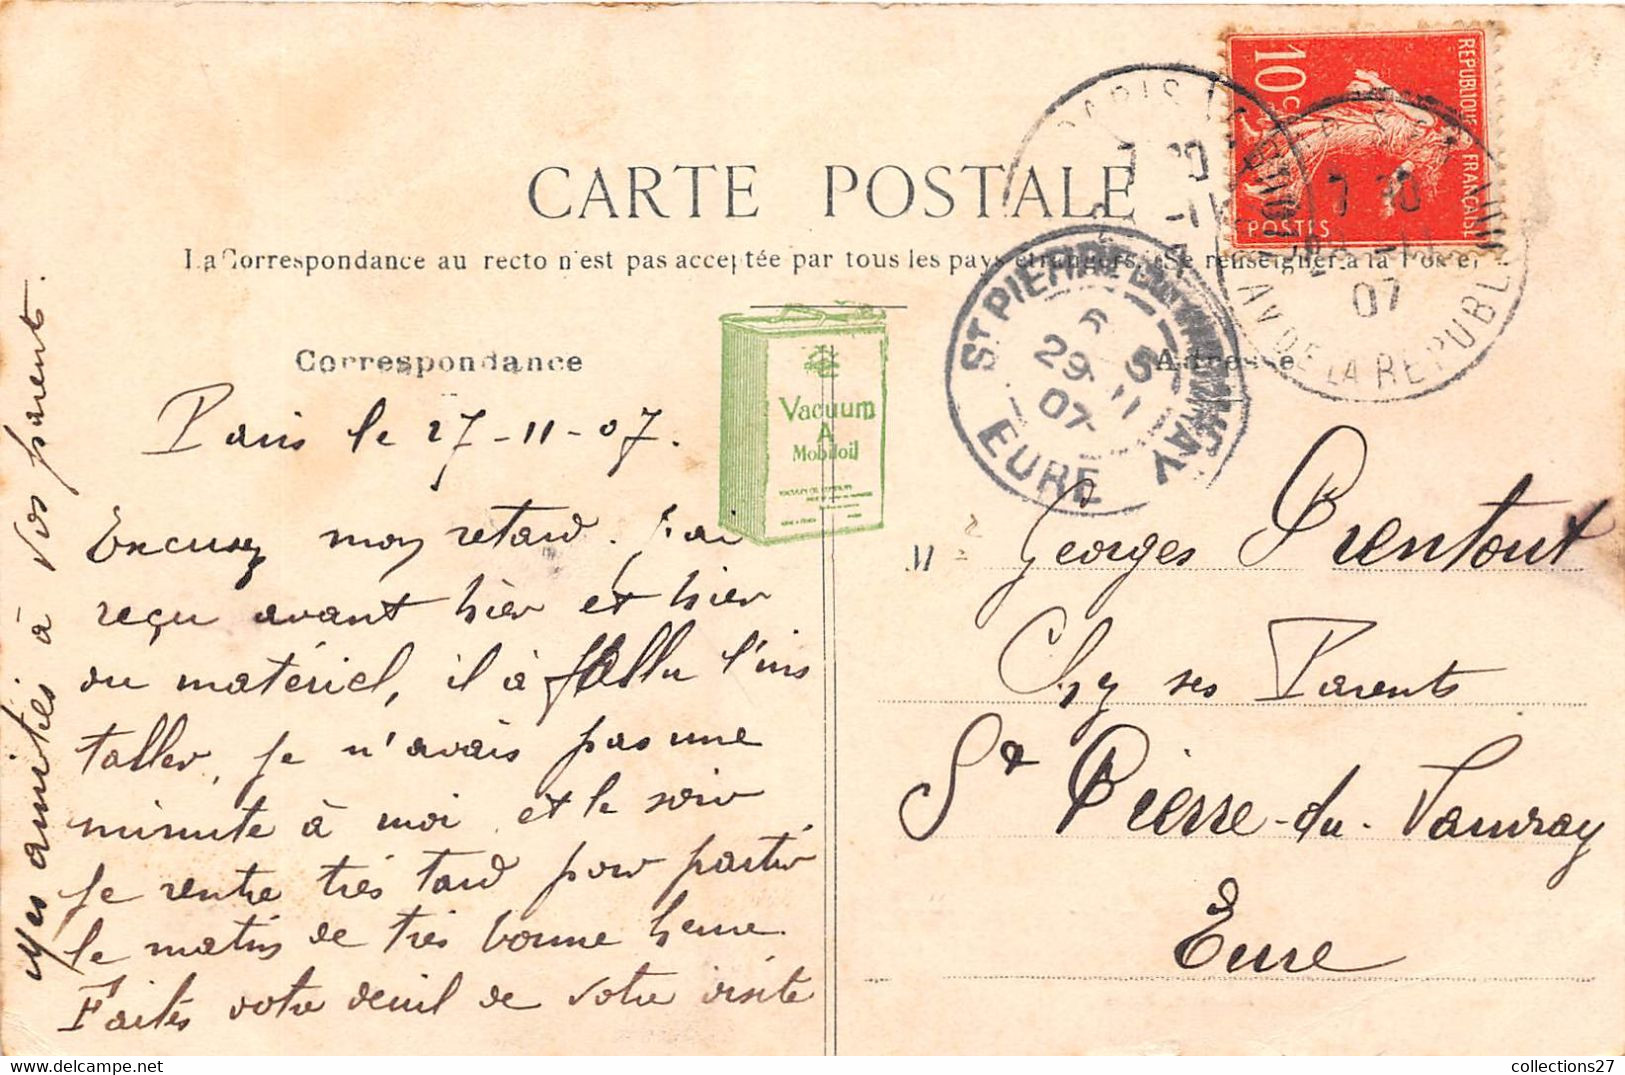 CARTE POSTALE
La Correspondance au recto n'est pas acceptée par tous les pays étrangers. (Se renseigner à la Poste)
Correspondance
Adresse
REPUBLIQUE FRANÇAISE
10c
POSTES
7 30
07
AV DE LA REPUBL
ST PIERRE DU VAUVRAY
5
29 - 11
07
EURE
Vacuum
A
Mobiloil
Paris le 27-11-07.
Excusez mon retard. J'ai
reçu avant hier et hier
du matériel, il à fallu l'ins
taller, je n'avais pas une
minute à moi et le soir
je rentre très tard pour partir
le matin de très bonne heure.
Faites votre deuil de votre visite
Mes amitiés à vos parents.
M Georges Prentout
Chez ses Parents
St Pierre-du-Vauvray
Eure
collections27